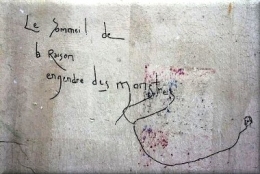 Le Sommeil de
la Raison
engendre des monstres